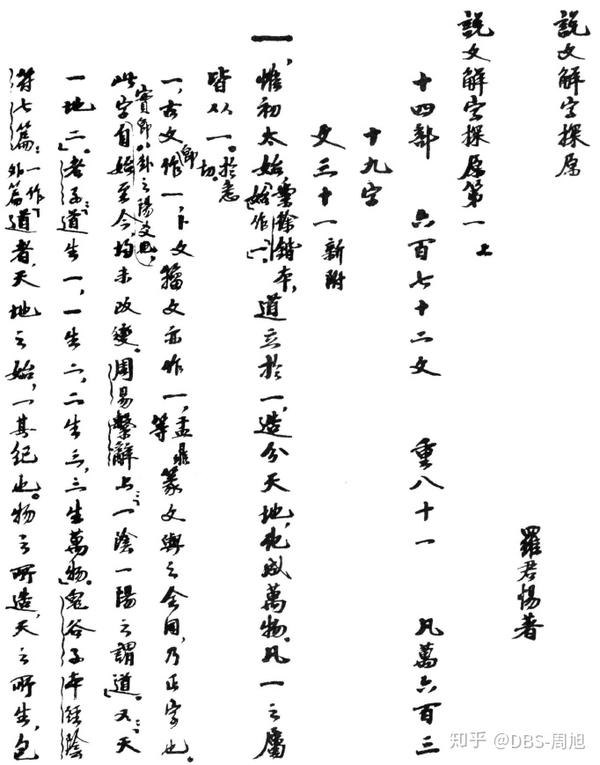 説文解字探原
羅君惕著
説文解字探原第一上
十四部 六百七十二文 重八十一 凡萬六百三
十九字
文三十一新附
一,惟初太始,皇餘鍇本,始作一。道立於一,造分天地,化成萬物。凡一之屬
皆从一。於悉切。
一,古文作一,卜文籀文亦作一,孟鼎等篆文與之全同,乃正字也。
此字自始至今,均未改變。周易繫辭上:一陰一陽之謂道。又:天
實即卦之陽爻也。
一地二。老子:道生一,一生二,二生三,三生萬物。鬼谷子本經陰
符七篇:一作外篇道者,天地之始,一其紀也。物之所造,天之所生,包
知乎 @DBS-周旭